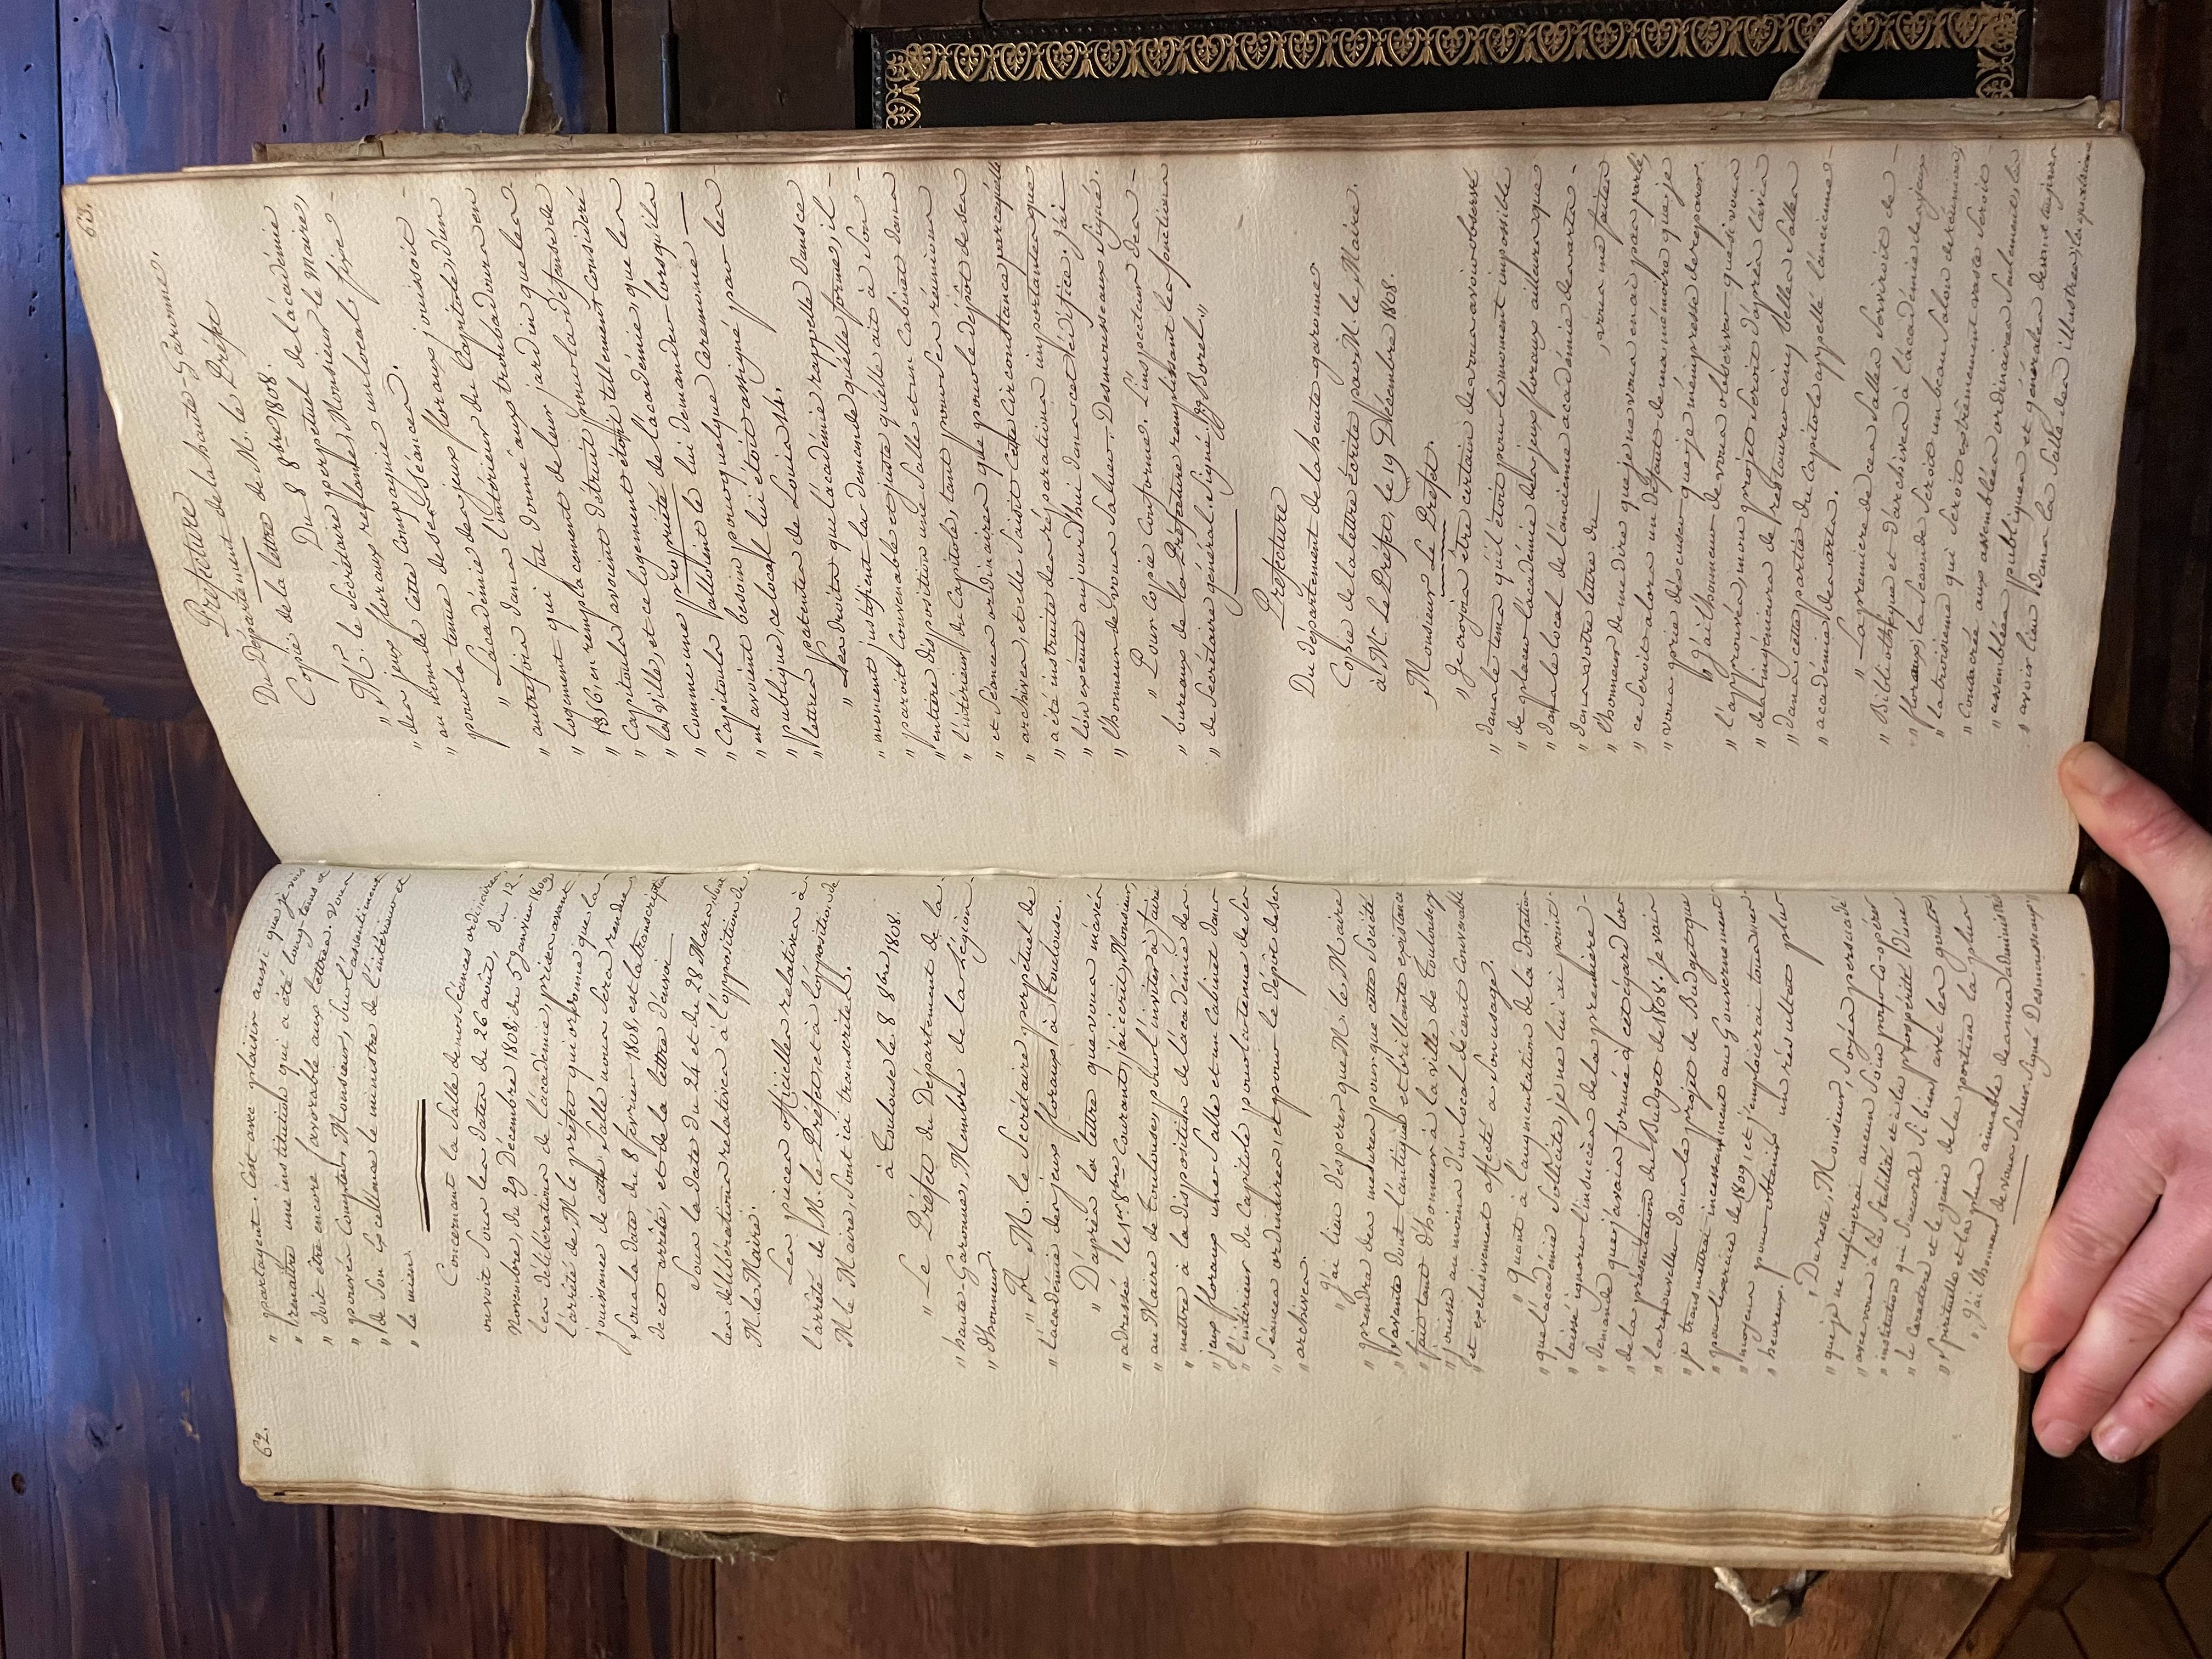 62.
" partagent. C'est avec plaisir aussi que je vois
" renaître une institution qui a été long-tems et
" doit être encore favorable aux lettres. vous
" pouvés compter, Monsieur, sur l'assentiment
" de Son Excellence le ministre de l'intérieur et
" le mien.
Concernant la Salle de nos Séances ordinaires
on voit Sous les dates du 26 août, du 12.
Novembre, du 29 Décembre 1808, du 5 Janvier 1809,
les délibérations de l'académie, prises avant
l'arrêté de M. le préfet qui ordonne que la
jouissance de cette Salle nous Sera rendue
Sous la date du 8 février 1808, est la transcription
de cet arrêté, et de la lettre d'envoi
Sous la date du 24 et du 28 Mars, sont
les délibérations relatives à l'opposition de
M. le Maire.
Les pièces officielles relatives à
l'arrêté de M. le Préfet, et à l'opposition de
M. le Maire, Sont ici transcrites.
à Toulouse le 8 8bre 1808.
" Le Préfet du Département de la
" haute Garonne, Membre de la légion
" d'honneur
" A M. le Secrétaire perpétuel de
" l'académie des jeux floraux, à Toulouse.
" D'après la lettre que vous m'avés
" adressée le 1er 8bre Courant, j'ai écrit, Monsieur,
" au Maire de Toulouse, pour l'inviter à faire
" mettre à la disposition de l'académie des
" jeux floraux une Salle et un Cabinet dans
" l'intérieur du Capitole, pour la tenue de Ses
" Séances ordinaires, et pour le dépôt de Ses
" archives.
" J'ai lieu d'espérer que M. le Maire
" prendra des mesures pour que cette Société
" Savante dont l'antique et brillante existance
" fait tant d'honneur à la ville de Toulouse, y
" jouisse au moins d'un local décent Convenable
" et exclusivement affecté à Son usage.
" Quant à l'augmentation de la dotation
" que l'académie Sollicite, je ne lui ai point
" laissé ignorer l'insuccès de la première
" demande que j'avais formée à cet égard lors
" de la présentation du Budget de 1808. Je vais
" la renouveller dans le projet de Budget que
" je transmettrai incessamment au Gouvernement
" pour l'exercice de 1809, et j'emploierai tous mes
" moyens pour obtenir un résultat plus
" heureux.
" Du reste, Monsieur, Soyés persuadé
" que je ne négligerai aucun Soin pour Co-opérer
" avec vous à la Stabilité et à la prospérité d'une
" institution qui S'accorde Si bien avec les goûts
" le Caractère et le génie de la portion la plus
" Spirituelle et la plus aimable de mes administrés
" J'ai l'honneur de vous Saluer. Signé Desmousseaux"
63.
Préfecture
Du Département de la haute-Garonne.
Copie de la lettre de M. le Préfet
Du 8 8bre 1808.
" M. le Secrétaire perpétuel de l'académie
" des jeux floraux réclame, Monsieur le Maire,
" au nom de cette Compagnie un local fixe
" pour la tenue de ses Séances.
" L'académie des jeux floraux jouissoit
" autrefois dans l'intérieur du Capitole, d'un
" logement qui fut donné aux trobadours en
" 1356. en remplacement de leur jardin que les
" Capitouls avoient détruit pour la défense de
" la ville, et ce logement étoit tellement Considéré
" Comme une propriété de l'académie, que les
" Capitouls alloient le lui demander lorsqu'ils
" en avoient besoin pour quelque Cérémonie
" publique, ce local lui étoit assigné par les
" lettres patentes de Louis 14.
" Les droits que l'académie rappelle dans ce
" moment justifient la demande qu'elle forme, il
" paroit Convenable et juste qu'elle ait à Son
" entière disposition une Salle et un Cabinet dans
" l'intérieur du Capitole, tant pour Ses réunions
" et Séances ordinaires que pour le dépôt de Ses
" archives, et elle Saisit Cette Circonstance parcequ'elle
" a été instruite des réparations importantes que
" l'on exécute aujourd'hui dans cet édifice. J'ai
" l'honneur de vous Saluer. Desmousseaux Signé.
" Pour Copie Conforme. L'inspecteur des
" bureaux de la Préfecture remplissant les fonctions
" de Secrétaire général. Signé. Jgg Borel"
Préfecture
Du département de la haute garonne
Copie de la lettre écrite par M. le Maire
à M. Le Préfet, le 19 Décembre 1808.
Monsieur Le Préfet.
" Je croyois être certain de vous avoir observé
" dans le tems qu'il étoit pour le moment impossible
" de placer l'académie des jeux floraux ailleurs que
" dans le local de l'ancienne académie des arts.
" dans votre lettre du , vous me faites
" l'honneur de me dire que je ne vous en ai pas parlé,
" ce Seroit alors un défaut de ma mémoire que je
" vous prie d'excuser et que je m'empresse de réparer.
" J'ai l'honneur de vous observer que si vous
" l'approuvés, mon projet Seroit d'après l'avis
" des ingénieurs de restaurer cinq belles Salles
" dans cette partie du Capitole appellé l'ancienne
" académie des arts.
" La première de ces Salles Serviroit de
" Bibliothèque et d'archives à l'académie des jeux
" floraux, la Seconde Seroit un beau Salon de réunion,
" la troisième qui Seroit extrêmement vaste Seroit
" Consacrée aux assemblées ordinaires Seulement, les
" assemblées publiques et générales devant toujours
" avoir lieu dans la Salle des illustres, la quatrième